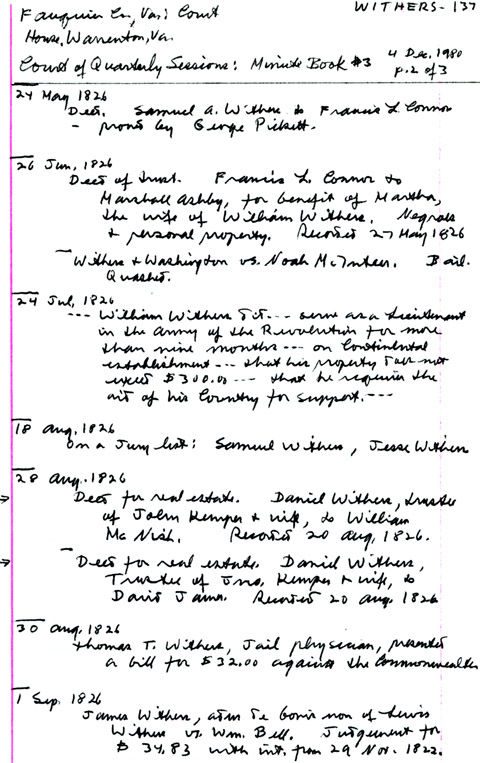 Fauquier Co., Va.; Court
WITHERS-137
House, Warrenton, Va.
Court of Quarterly Sessions: Minute Book #3
4 Dec, 1980
p. 2 of 3
24 May 1826
Deed. Samuel A. Withers to Francis L. Connor
- proved by George Pickett.
26 Jun, 1826
Deed of trust. Francis L. Connor to
Marshall Ashby, for benefit of Martha,
the wife of William Withers. Negroes
+ personal property. Recorded 27 May 1826
- Withers + Washington vs. Noah McInteer. Bail.
Quashed.
24 Jul, 1826
--- William Withers --- serve as a Lieutenant
in the Army of the Revolution for more
than nine months --- on Continental
establishment --- that his property does not
exceed $300.00 --- that he requires the
aid of his Country for support. ---
18 Aug. 1826
On a Jury list: Samuel Withers, Jesse Withers
28 Aug. 1826
→ Deed for real estate. Daniel Withers, trustee
of John Kemper + wife, to William
McNish. Recorded 20 Aug, 1826.
→ - Deed for real estate. Daniel Withers,
Trustee of Jno. Kemper + wife, to
David James. Recorded 20 Aug. 1826
30 Aug. 1826
Thomas T. Withers, Jail physician, presented
a bill for $32.00 against the Commonwealth
1 Sep. 1826
James Withers, adm de bonis non of Lewis
Withers vs. Wm. Bell. Judgement for
$ 34.83 with int. from 29 Nov. 1822.